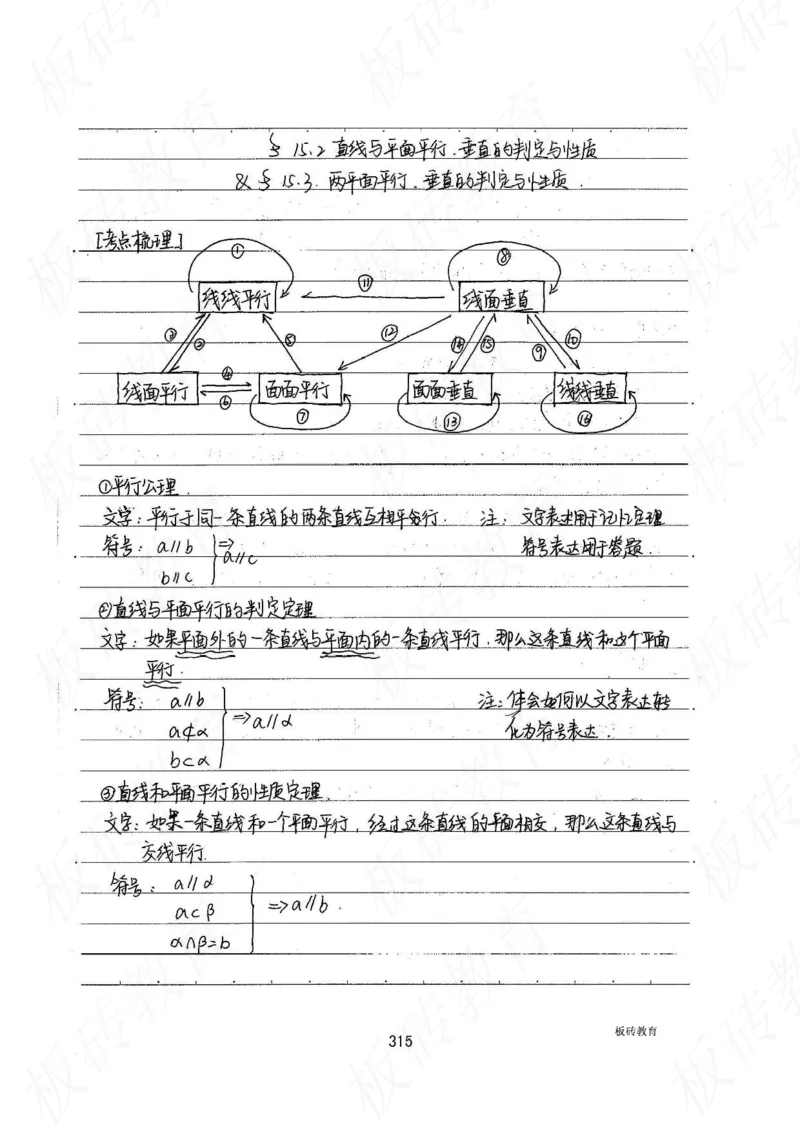 § 15.2 直线与平面平行、垂直的判定与性质
& § 15.3. 两平面平行、垂直的判定与性质.
[考点梳理]
① ⑧
⑪
线线平行 线面垂直
③ ② ⑤ ⑫ ⑭ ⑮ ⑨ ⑩
④
线面平行 面面平行 面面垂直 线线垂直
⑥ ⑦ ⑬ ⑯
①平行公理.
文字:平行于同一条直线的两条直线互相平行. 注: 文字表述用于记忆定理
符号: a//b ⇒ a//c 符号表达用于答题.
b//c
②直线与平面平行的判定定理
文字:如果平面外的一条直线与平面内的一条直线平行,那么这条直线和这个平面
平行.
符号: a//b 注:体会如何以文字表达转
a⊄α ⇒a//α 化为符号表达.
b⊂α
③直线和平面平行的性质定理.
文字:如果一条直线和一个平面平行,经过这条直线的平面相交,那么这条直线与
交线平行.
符号: a//α
a⊂β ⇒a//b.
α∩β=b
板砖教育
315